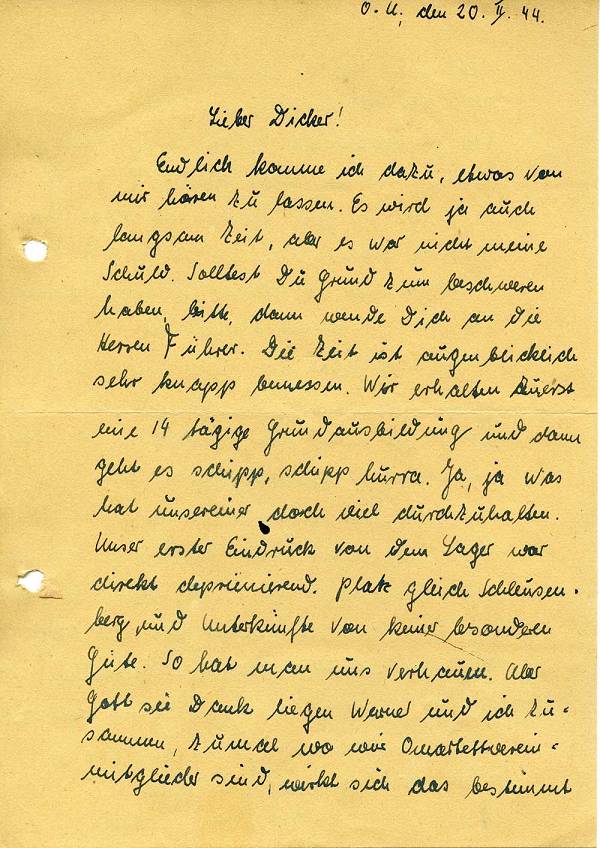 O. U., den 20. II. 44.
Lieber Dicker!
Endlich komme ich dazu, etwas von
mir hören zu lassen. Es wird ja auch
langsam Zeit, aber es war nicht meine
Schuld. Solltest Du Grund zum beschweren
haben, bitte, dann wende Dich an die
Herren Führer. Die Zeit ist augenblicklich
sehr knapp bemessen. Wir erhalten zuerst
eine 14 tägige Grundausbildung und dann
geht es schipp, schipp hurra. Ja, ja was
hat unsereiner doch viel durchzuhalten.
Unser erster Eindruck von dem Lager war
direkt deprimierend. Platz gleich Schleusen-
berg, und Unterkünfte von keiner besonderen
Güte. So hat man uns verhauen. Aber
Gott sei Dank liegen Werner und ich zu-
sammen, zumal wo wir
mitglieder sind, wirkt sich das bestimmt